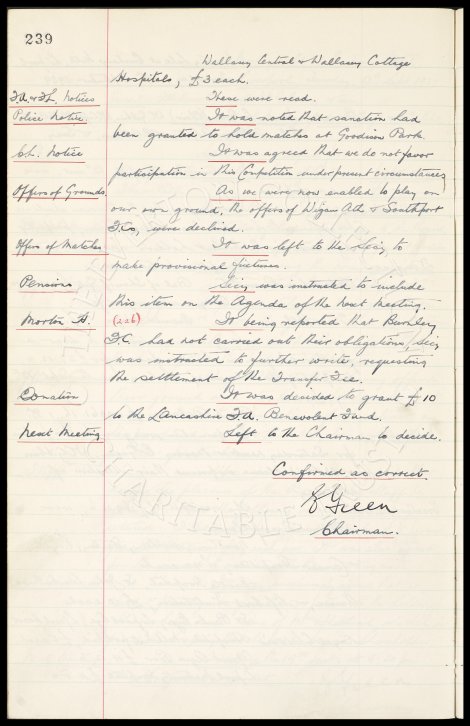 239
Wallasey Central & Wallasey Cottage
Hospitals, £3 each.
F.A. & F.L. Notices These were read.
Police Notice. It was noted that sanction had
been granted to hold matches at Goodison Park.
C.L. Notice It was agreed that we do not favor
participation in this Competition under present circumstances
Offers of Grounds. As we were now enabled to play on
our own ground, the offers of Wigan Ath & Southport
F.Cs, were declined.
Offers of Matches It was left to the Secy to
make provisional fixtures.
Pensions Secy was instructed to include
this item on the Agenda of the next meeting.
Morton A. (226) It being reported that Burnley
F.C. had not carried out their obligations, Secy
was instructed to further write, requesting
the settlement of the Transfer Fee.
Donation It was decided to grant £10
to the Lancashire F.A. Benevolent Fund.
Next Meeting Left to the Chairman to decide.
Confirmed as correct.
E Green
Chairman.
CHARITABLE